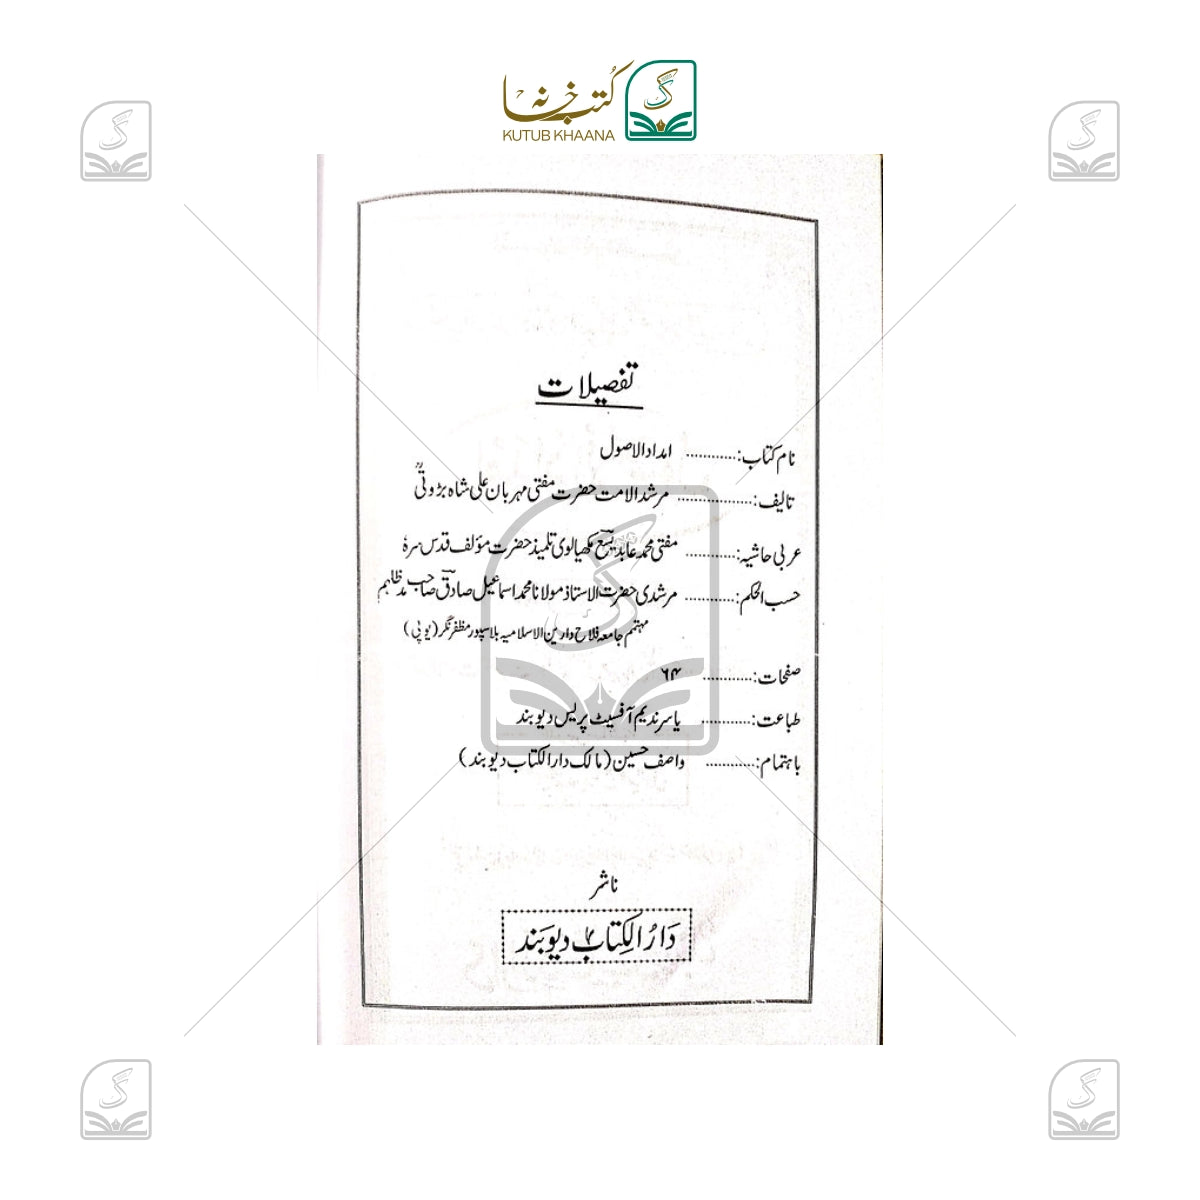 کُتب خانہ
KUTUB KHAANA
تفصیلات
نام کتاب:............ امداد الاصول
تالیف:.................. مرشد الامت حضرت مفتی مہربان علی شاہ بڑوتیؒ
عربی حاشیہ:............ مفتی محمد عابد یسع مکھیالوی تلمیذ حضرت مؤلف قدس سرہٗ
حسب الحکم:............ مرشدی حضرت الاستاذ مولانا محمد اسماعیل صادق صاحب مد ظلہم
مہتمم جامعہ فلاح دارین الاسلامیہ بلاسپور مظفر نگر (یوپی)
صفحات:............ ۶۴
طباعت:............ یاسر ندیم آفسیٹ پریس دیوبند
باہتمام:............ واصف حسین (مالک دار الکتاب دیوبند)
ناشر
دَارُ الکِتاب دیوبَند